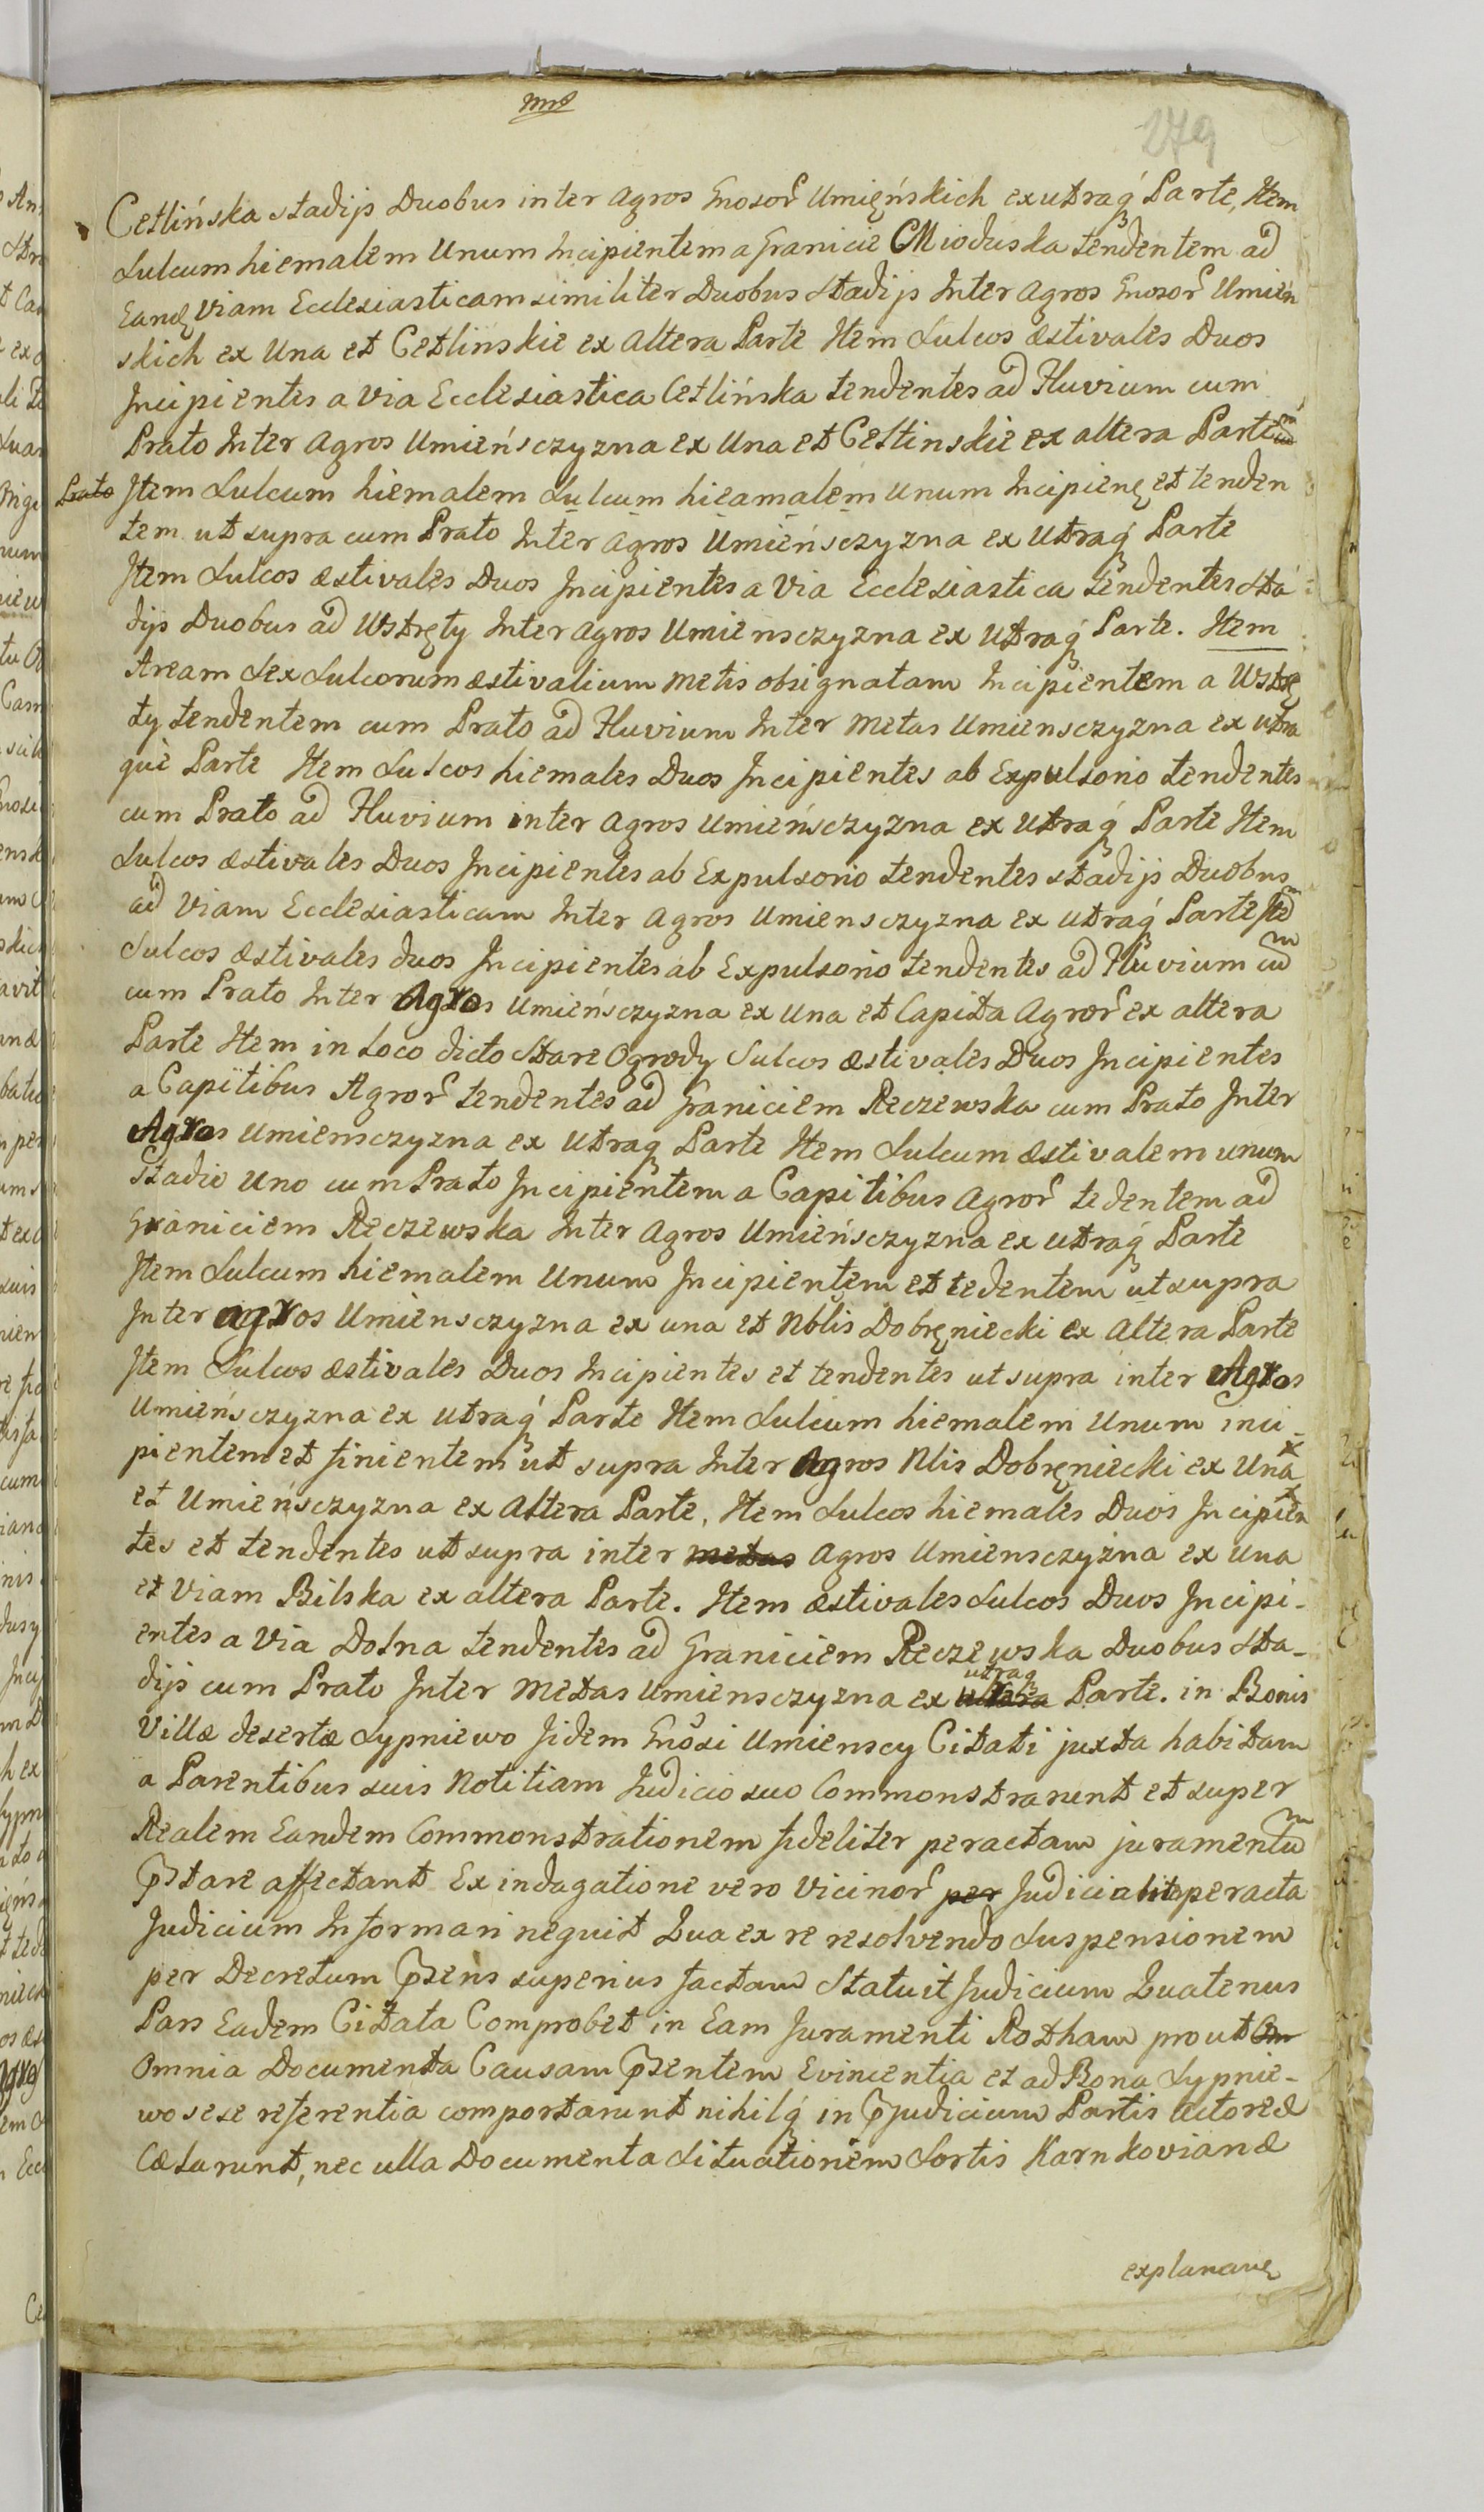 279
Cetlińska stadijs Duobus inter Agros Gnosor Umięńskich ex utraq Parte, Item
Sulcum hiemalem Unum Incipientem a Granicie Mioduska tendentem ad
Eandę Viam Ecclesiasticam similiter Duobus Stadijs Inter Agros Gnosor Umień
skich ex Una et Cetlinskie ex Altera Parte Item Sulcos æstivales Duos
Incipientes a Via Ecclesiastica Cetlińska tendentes ad Fluvium cum
Prato Inter Agros Umieńsczyzna ex Una et Cetlinskie ex altera Parte
Prato Item Sulcum hiemalem Sulcum hieamalem unum Incipienę et tenden
tem ut supra cum Prato Inter Agros Umieńsczyzna ex Utraq Parte
Item Sulcos æstivales Duos Incipientes a Via Ecclesiastica tendentes Sta
dijs Duobus ad Wstręty Inter Agros Umiensczyzna ex Utraq Parte. Item
Aream Sex Sulcorum æstivalium metis obsignatam Incipientem a Wstrę
ty tendentem cum Prato ad Fluvium Inter Metas Umiensczyzna ex utra
que Parte Item Sulcos hiemales Duos Incipientes ab Expulsorio tendentes
cum Prato ad Fluvium inter Agros Umieńsczyzna ex Utraq Parte Item
Sulcos æstivales Duos Incipientes ab Expulsorio tendentes stadijs Duobus
ad Viam Ecclesiasticam Inter Agros Umiensczyzna ex utraq Parte Ite
Sulcos æstivales duos Incipientes ab Expulsorio tendentes ad Fluvium cu
cum Prato Inter Agros Umieńsczyzna ex Una et Capita Agror ex altera
Parte Item in Loco dicto Stare Ogrody Sulcos æstivales Duos Incipientes
a Capitibus Agror tendentes ad Graniciem Reczewska cum Prato Inter
Agros Umiensczyzna ex Utraq Parte Item Sulcum æstivalem unum
Stadio Uno cum Prato Incipientem a Capitibus Agror tedentem ad
Graniciem Reczewska Inter Agros Umieńsczyzna ex utraq Parte
Item Sulcum hiemalem Unum Incipientem et tedentem ut supra
Inter agros Umiensczyzna ex una et Nblis Dobręniecki ex Altera Parte
Item Sulcos æstivales Duos Incipientes et tendentes ut supra inter Agros
Umieńsczyzna ex utraq Parte Item Sulcum hiemalem Unum inci-
pientem et finientem ut supra Inter Agros Nlis Dobręniecki ex Una
et Umieńsczyzna ex Altera Parte, Item Sulcos hiemales Duos Incipien
tes et tendentes ut supra inter metas Agros Umiensczyzna ex Una
et Viam Bilska ex altera Parte. Item æstivales Sulcos Duos Incipi-
entes a Via Dolna tendentes ad Graniciem Reczewska Duobus Sta-
dijs cum Prato Inter Metas Umiensczyzna ex utraq Parte. in Bonis
Villæ desertæ Lypniewo Jidem Gnosi Umienscy Citati juxta habitam
a Parentibus suis Notitiam Judicio suo Commonstrarunt et super
Realem Eandem Commonstrationem fideliter peractam juramentu
pstare affectant Ex indagatione vero Vicinor per Judicialiter peracta
Judicium Informari nequit Qua ex re resolvendo Suspensionem
per Decretum psens superius factam Statuit Judicium Quatenus
Pars Eadem Citata Comprobet in Eam Juramenti Rotham prout Om
Omnia Documenta Causam psentem Evincentia et ad Bona Lypnie-
wo sese referentia comportarunt nihilq in pjudicium Partis Actoreæ
Cælarunt, nec ulla Documenta Situationem Sortis Karnkovianæ
explananę